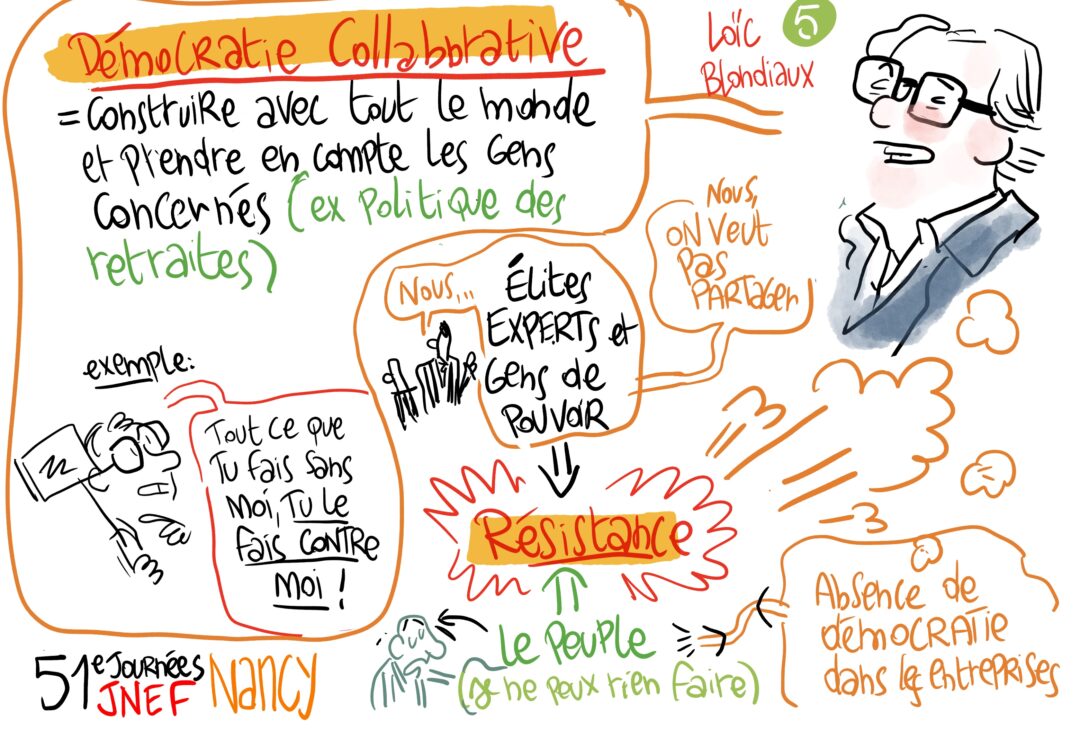 Démocratie Collaborative
= Construire avec tout le monde
et prendre en compte les gens
concernés (ex politique des
retraites)
Loïc
Blondiaux
5
Nous,
on veut
pas
partager
Nous,...
Élites
Experts et
gens de
pouvoir
exemple:
Tout ce que
tu fais sans
moi, tu le
fais contre
moi !
Résistance
Le peuple
(je ne peux rien faire)
Absence de
démocratie
dans les entreprises
51e Journées
JNEF Nancy